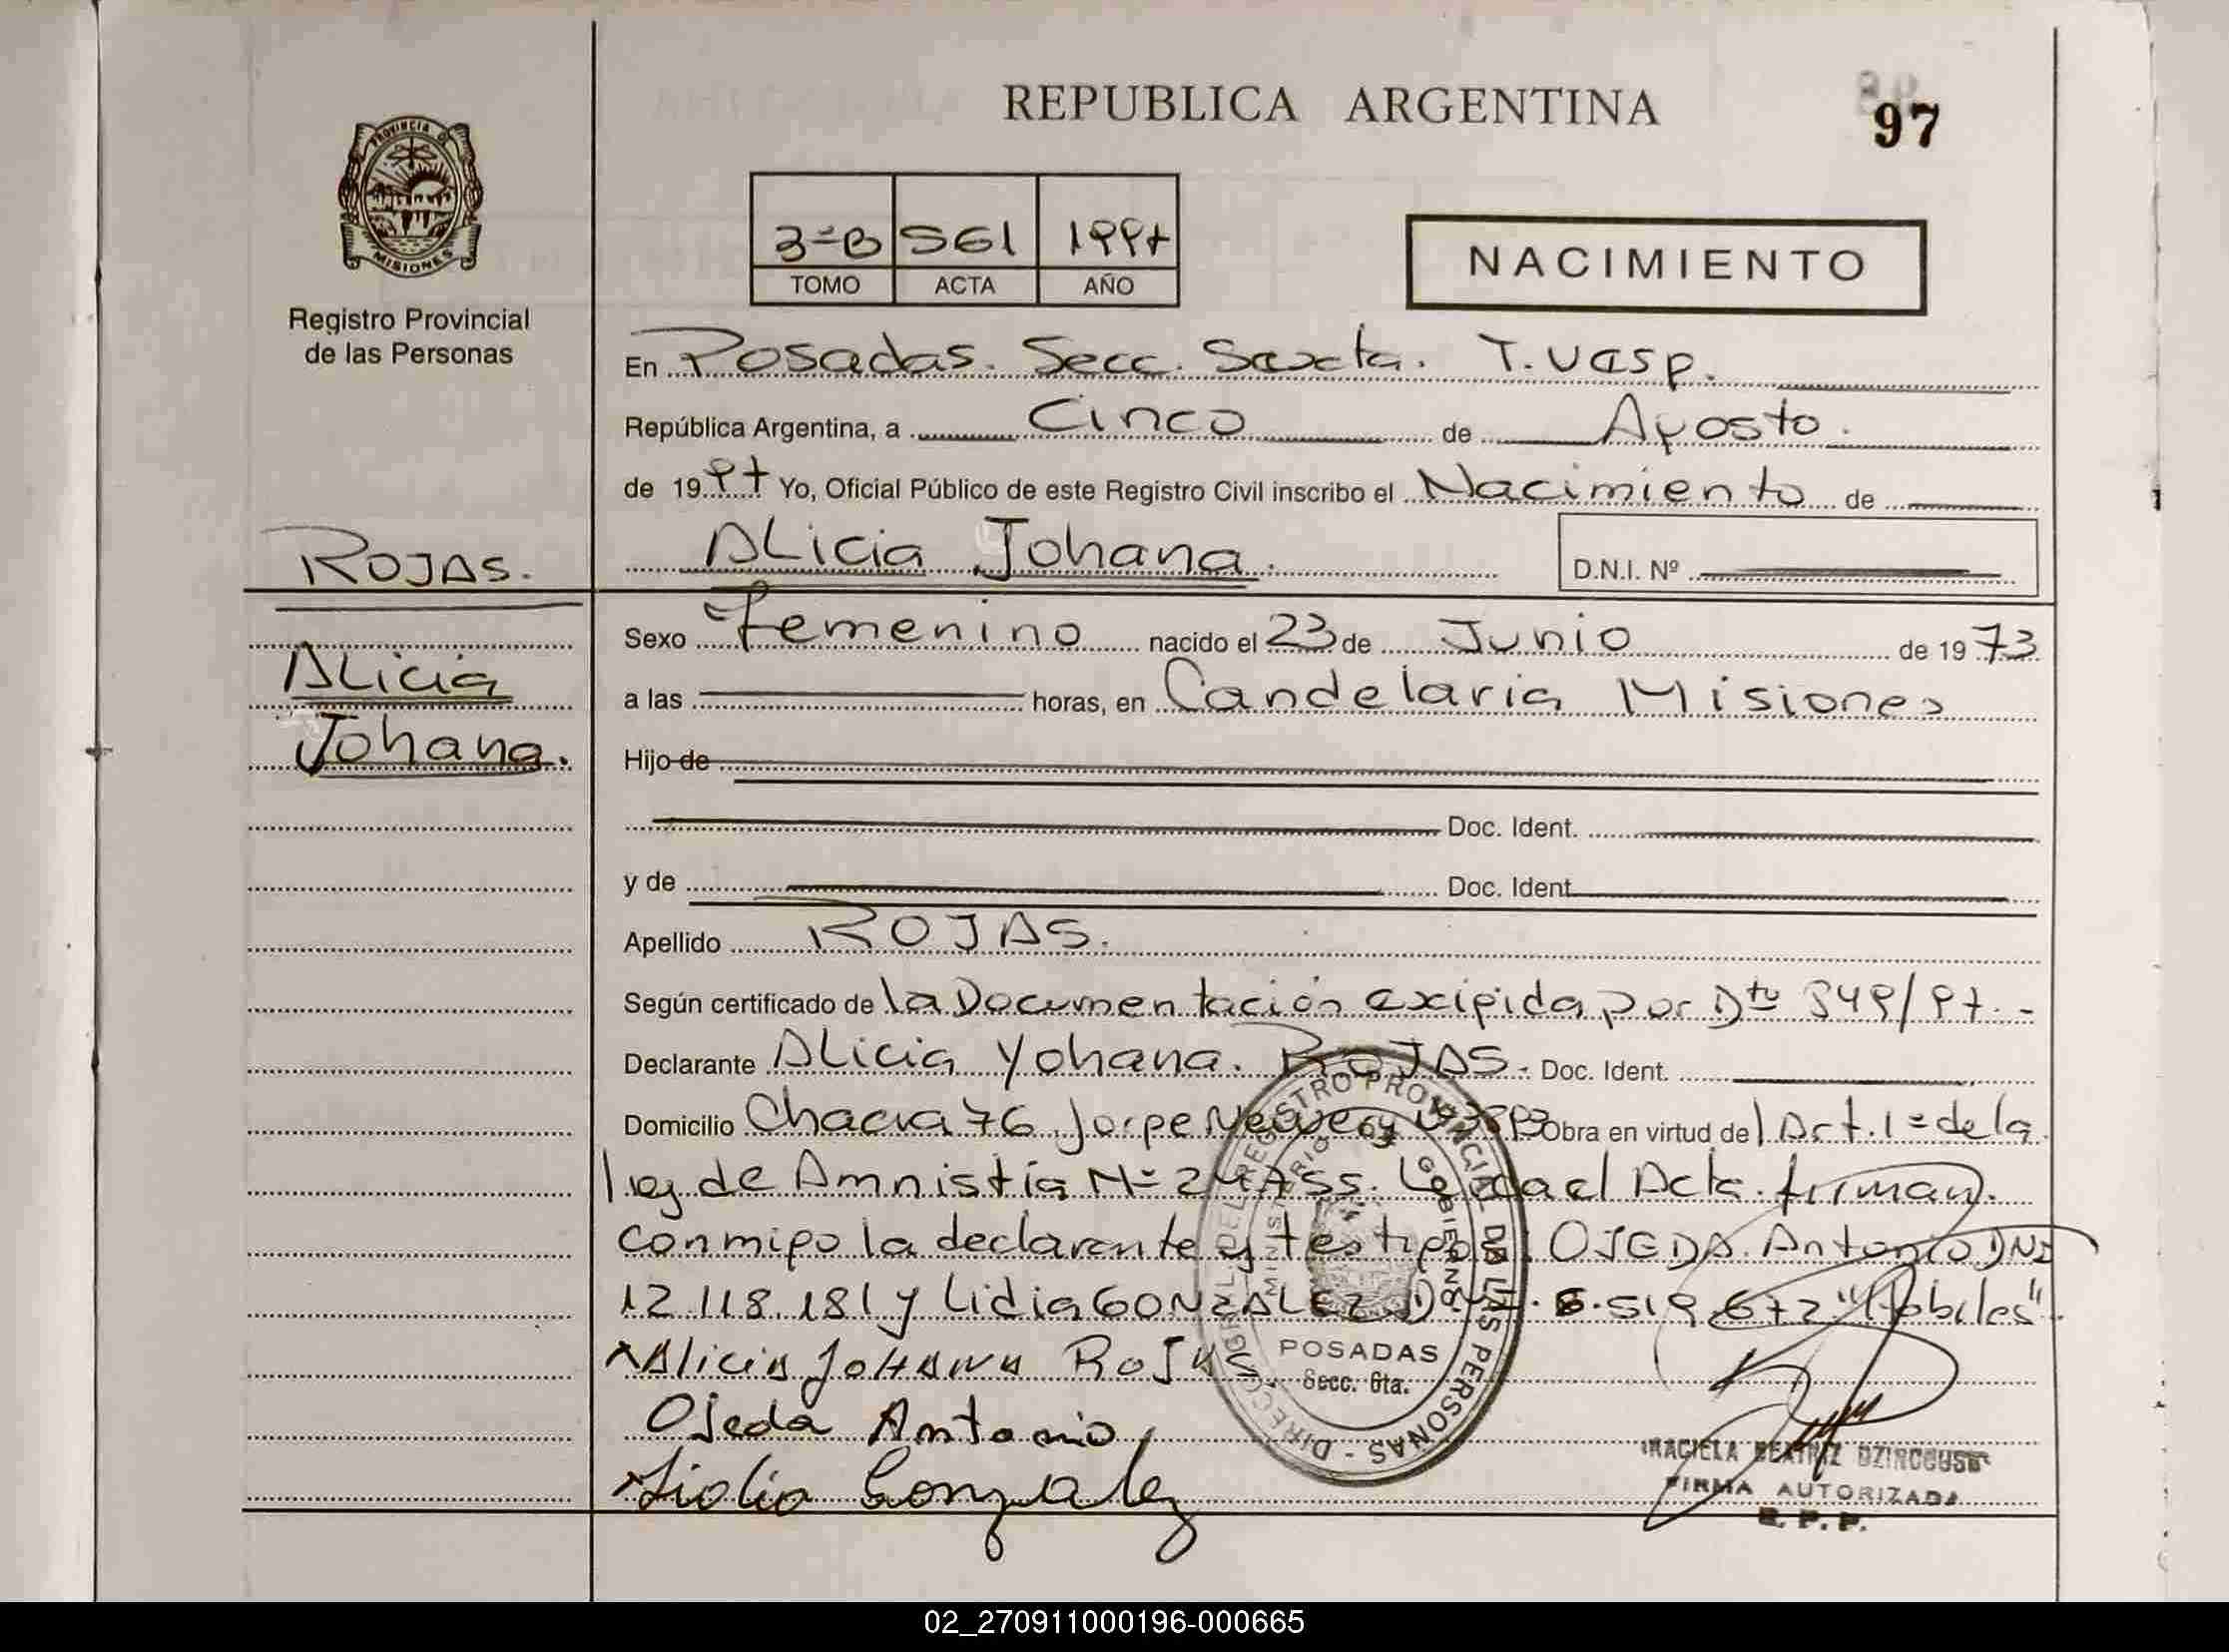 REPUBLICA ARGENTINA
97
PROVINCIA DE
MISIONES
Registro Provincial
de las Personas
3º-B 561 1997
TOMO ACTA AÑO
NACIMIENTO
En Posadas. Secc. Sexta. T. Vesp.
República Argentina, a Cinco de Agosto.
de 1997 Yo, Oficial Público de este Registro Civil inscribo el Nacimiento de
ROJAS.
Alicia Johana.
Alicia Johana.
D.N.I. Nº
Sexo Femenino nacido el 23 de Junio de 1973
a las horas, en Candelaria Misiones
Hijo de
Doc. Ident.
y de Doc. Ident.
Apellido ROJAS.
Según certificado de la Documentación exigida por Dto 849/97.-
Declarante Alicia Yohana. ROJAS. Doc. Ident.
Domicilio Chacra 76 Jorge Newery Obra en virtud del Art. 1º de la
ley de Amnistia Nº 24.755. Leida el Acta. firman.
conmigo la declarante y testigos: OJEDA. Antonio DNI
12.118.181 y Lidia GONZALEZ D 6.519.672 "Habiles".
Alicia JOHANA ROJAS
Ojeda Antonio
Lidia Gonzalez
DIRECCION GRAL DEL REGISTRO PROVINCIAL DE LAS PERSONAS -
MINISTERIO DE GOBIERNO
POSADAS
Secc. 6ta.
GRACIELA BEATRIZ
FIRMA AUTORIZADA
R. P. P.
02_270911000196-000665